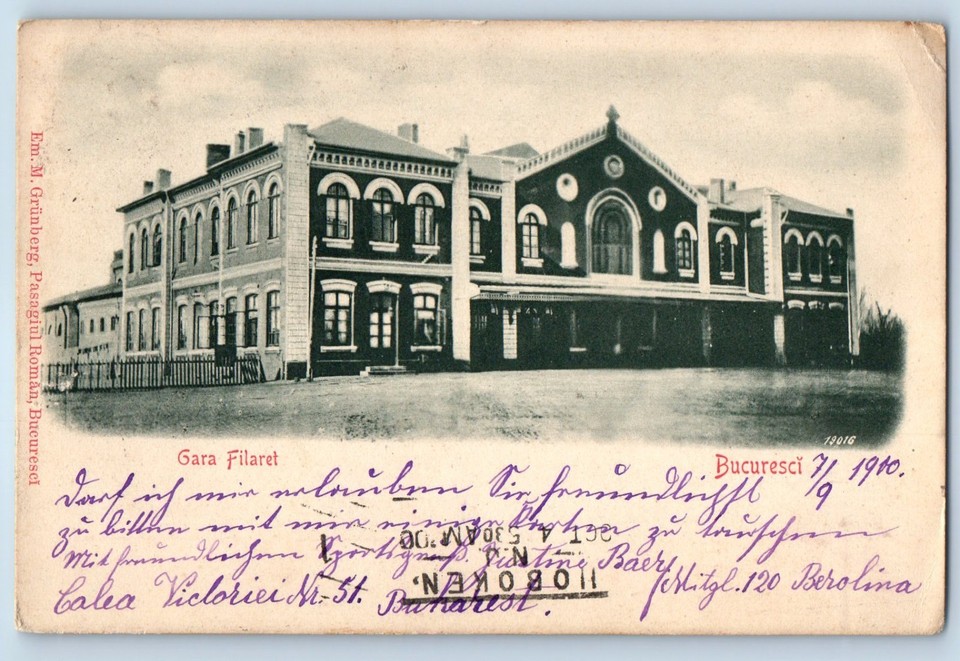 Em. M. Grünberg, Pasagiul Român, Bucurescĭ
13016
Gara Filaret
Bucurescĭ 7/9 1900.
Darf ich mir erlauben Sie freundlichst
zu bitten mit mir einige Karten zu tauschen
Mit freundlichem Sportsgruß. Justine Baer
(Mitgl. 120 Berolina
Calea Victoriei Nr. 51. Bukarest.
HOBOKEN,
N.J.
OCT 4 5 30AM '00
1